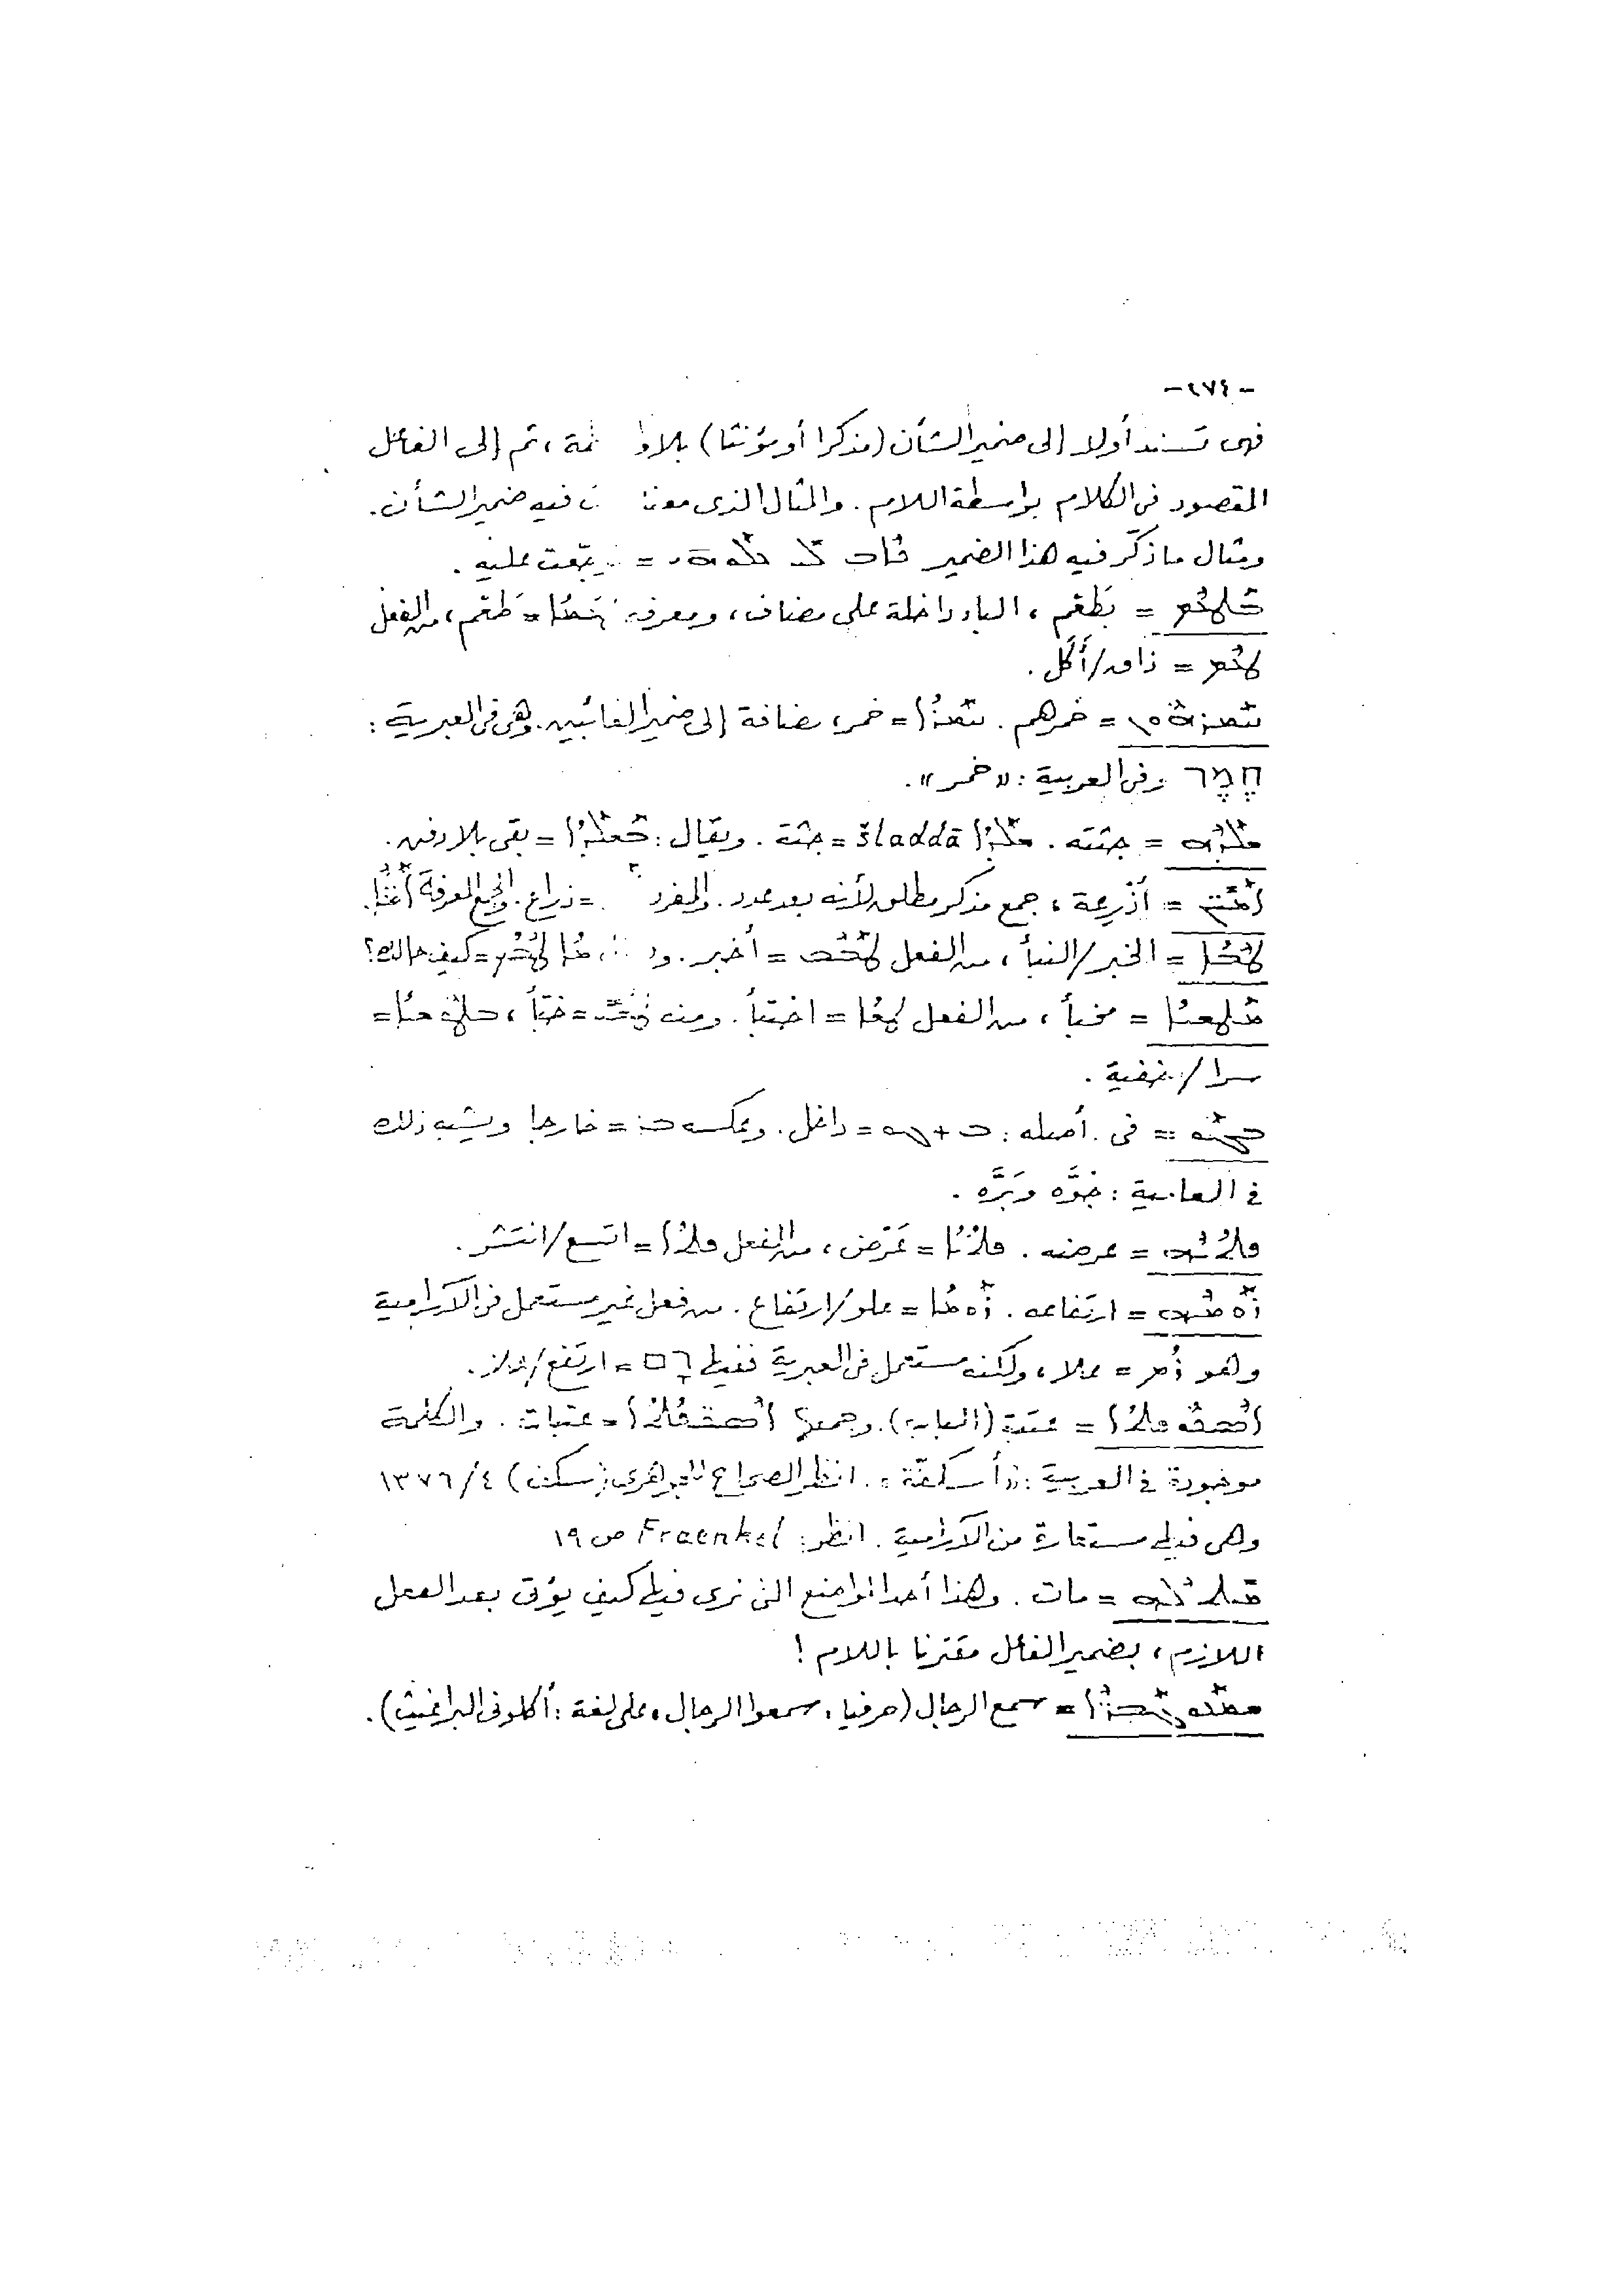 -٢٧٤-
فهى تسند أولا إلى ضمير الشأن (مذكرا أو مؤنثا) بلا ، ثم إلى الفاعل
المقصود فى الكلام بواسطة اللام. والمثال الذى معنا فيه ضمير الشأن.
ومثال ما ذكّر فيه هذا الضمير = عليه.
ܒܛܥܡ = بطَعْم، الباء داخلة على مضاف، ومعرفه ܛܥܡܐ = طَعْم، من الفعل
ܛܥܡ = ذاق/أَكَل.
ܚܡܪܗܘܢ = خمرهم. ܚܡܪܐ = خمر، مضافة إلى ضمير الغائبين. وهى فى العبرية:
חֶמֶר وفى العربية: «خمر».
ܫܠܕܗ = جثته. ܫܠܕܐ šladdā = جثة. ويقال: = بقى بلا دفن.
ܐܡܝܢ = أذْرِعة، جمع مذكر مطلق لأنه بعد عدد. والمفرد = ذراع. والجمع المعرفة
ܛܒܐ = الخبر/النبأ، من الفعل = أخبر. = كيف حالك؟
ܡܛܫܝܐ = مخبأ، من الفعل ܛܫܐ = اختبأ. ومنه = خبّأ، =
سرا/خفية.
ܒܓܘ = فى. أصله: ܒ + ܓܘ = داخل. وعكسه = خارجا ويشبه ذلك
فى العامية: جُوَّه وبَرَّه.
ܦܬܝܗ = عرضه. ܦܬܝܐ = عَرْض، من الفعل ܦܬܐ = اتسع/انتشر.
ܪܘܡܗ = ارتفاعه. ܪܘܡܐ = علو/ارتفاع. من فعل غير مستعمل فى الآرامية
وهو ܪܡ = علا، ولكنه مستعمل فى العبرية ففيها רָם = ارتفع/
ܐܣܟܘܦܬܐ = عتبة (الباب). وجمعها = عتبات. والكلمة
موجودة فى العربية: «أسكفّة». انظر الصحاح للجوهرى (سكف) ٤/١٣٧٦
وهى فيها مستعارة من الآرامية. انظر: Fraenkel ص ١٩
ܡܝܬ ܠܗ = مات. وهذا أحد المواضع التى نرى فيها كيف يؤتى بعد الفعل
اللازم، بضمير الفاعل مقترنا باللام!
ܫܡܥܘ ܓܒܪܐ = سمع الرجال (حرفيا: سمعوا الرجال، على لغة: أكلونى البراغيث).